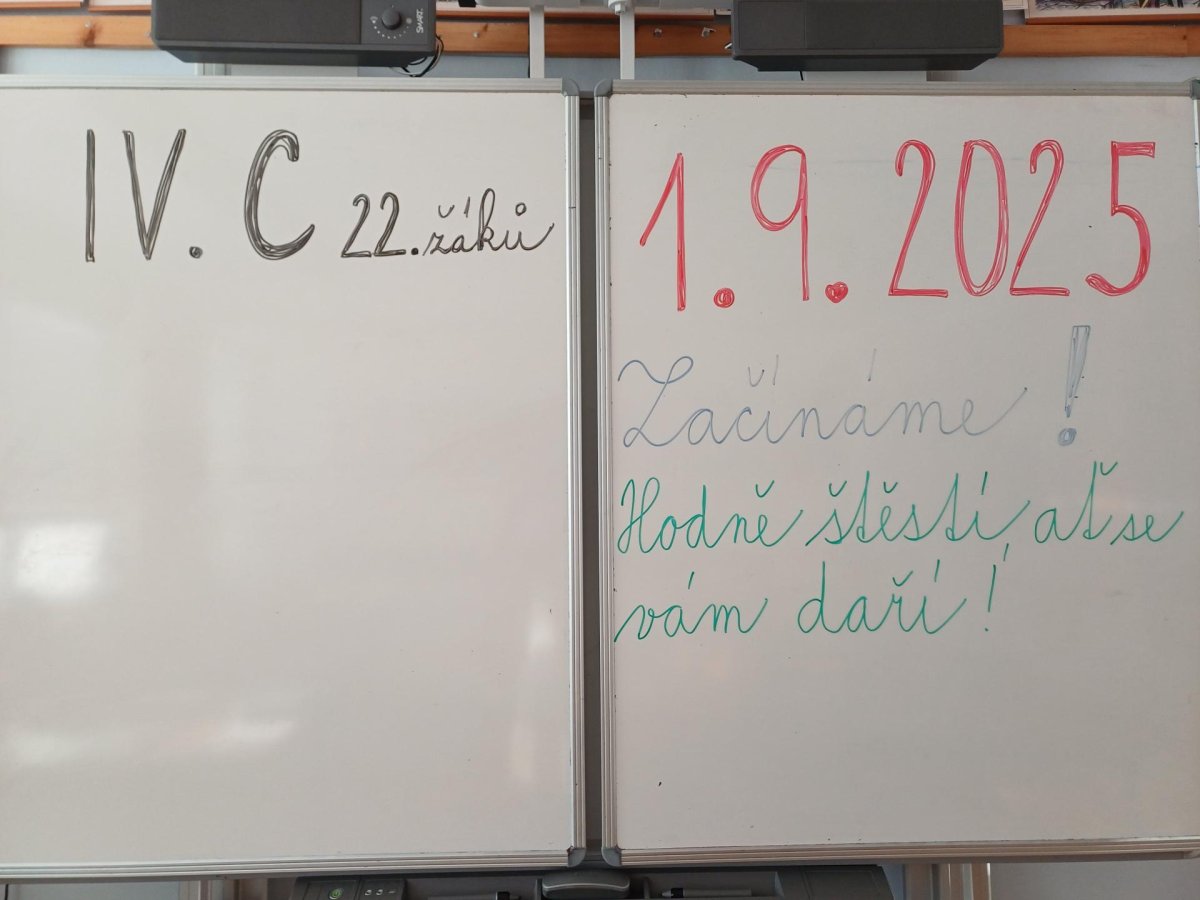 IV. C 22. žáků
1. 9. 2025
Začínáme!
Hodně štěstí, ať se
vám daří!
SMART